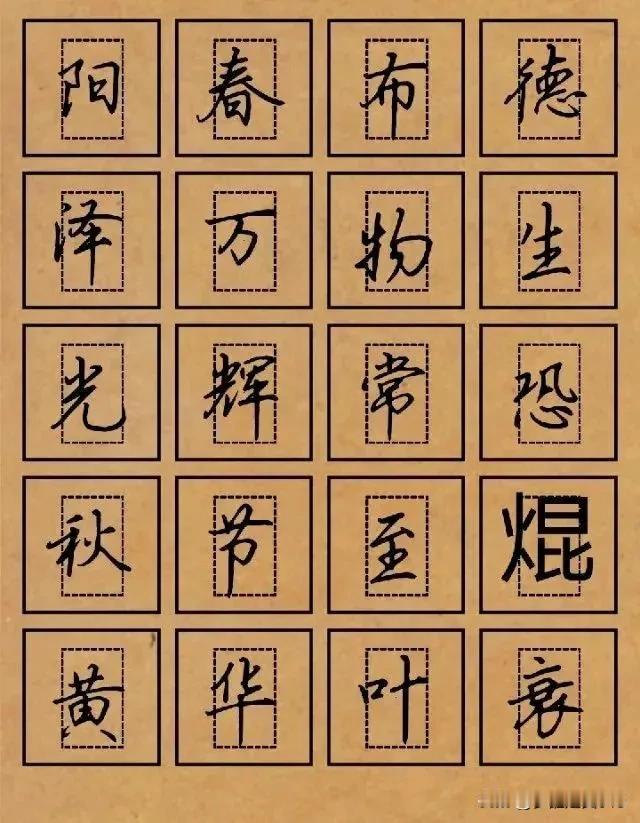 阳春布德
泽万物生
光辉常恐
秋节至焜
黄华叶衰